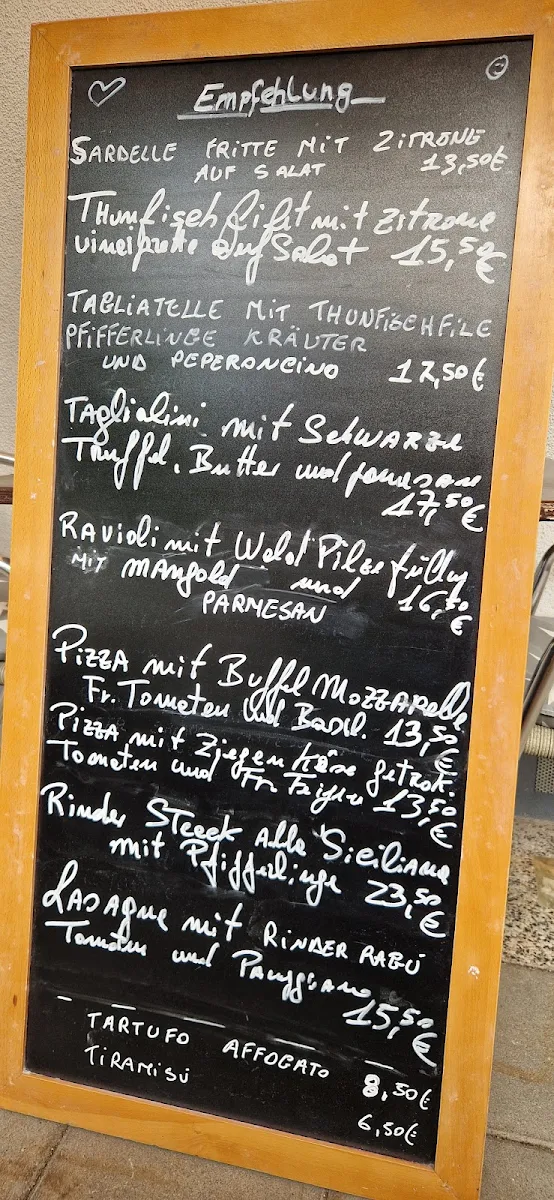 Empfehlung
SARDELLE FRITTE MIT ZITRONE
AUF SALAT 13,50€
Thunfisch filet mit Zitrone
vineigrette auf Salat 15,50€
TAGLIATELLE MIT THUNFISCHFILE
PFIFFERLINGE KRÄUTER
UND PEPERONCINO 17,50€
Tagliolini mit Schwarze
Truffel, Butter und parmesan
17,50€
Ravioli mit Wald Pilze füllung
MIT Mangold und 16,50€
PARMESAN
Pizza mit Buffel Mozzarella
Fr. Tomaten und Basil. 13,50€
Pizza mit Ziegen käse getrok.
Tomaten und Fr. Feigen 13,50€
Rinder Steek Alla Siciliana
mit Pfifferlinge 23,50€
Lasagne mit RINDER RAGÚ
Tomaten und Parmggiano
15,50€
TARTUFO AFFOGATO 8,50€
TIRAMISÚ 6,50€